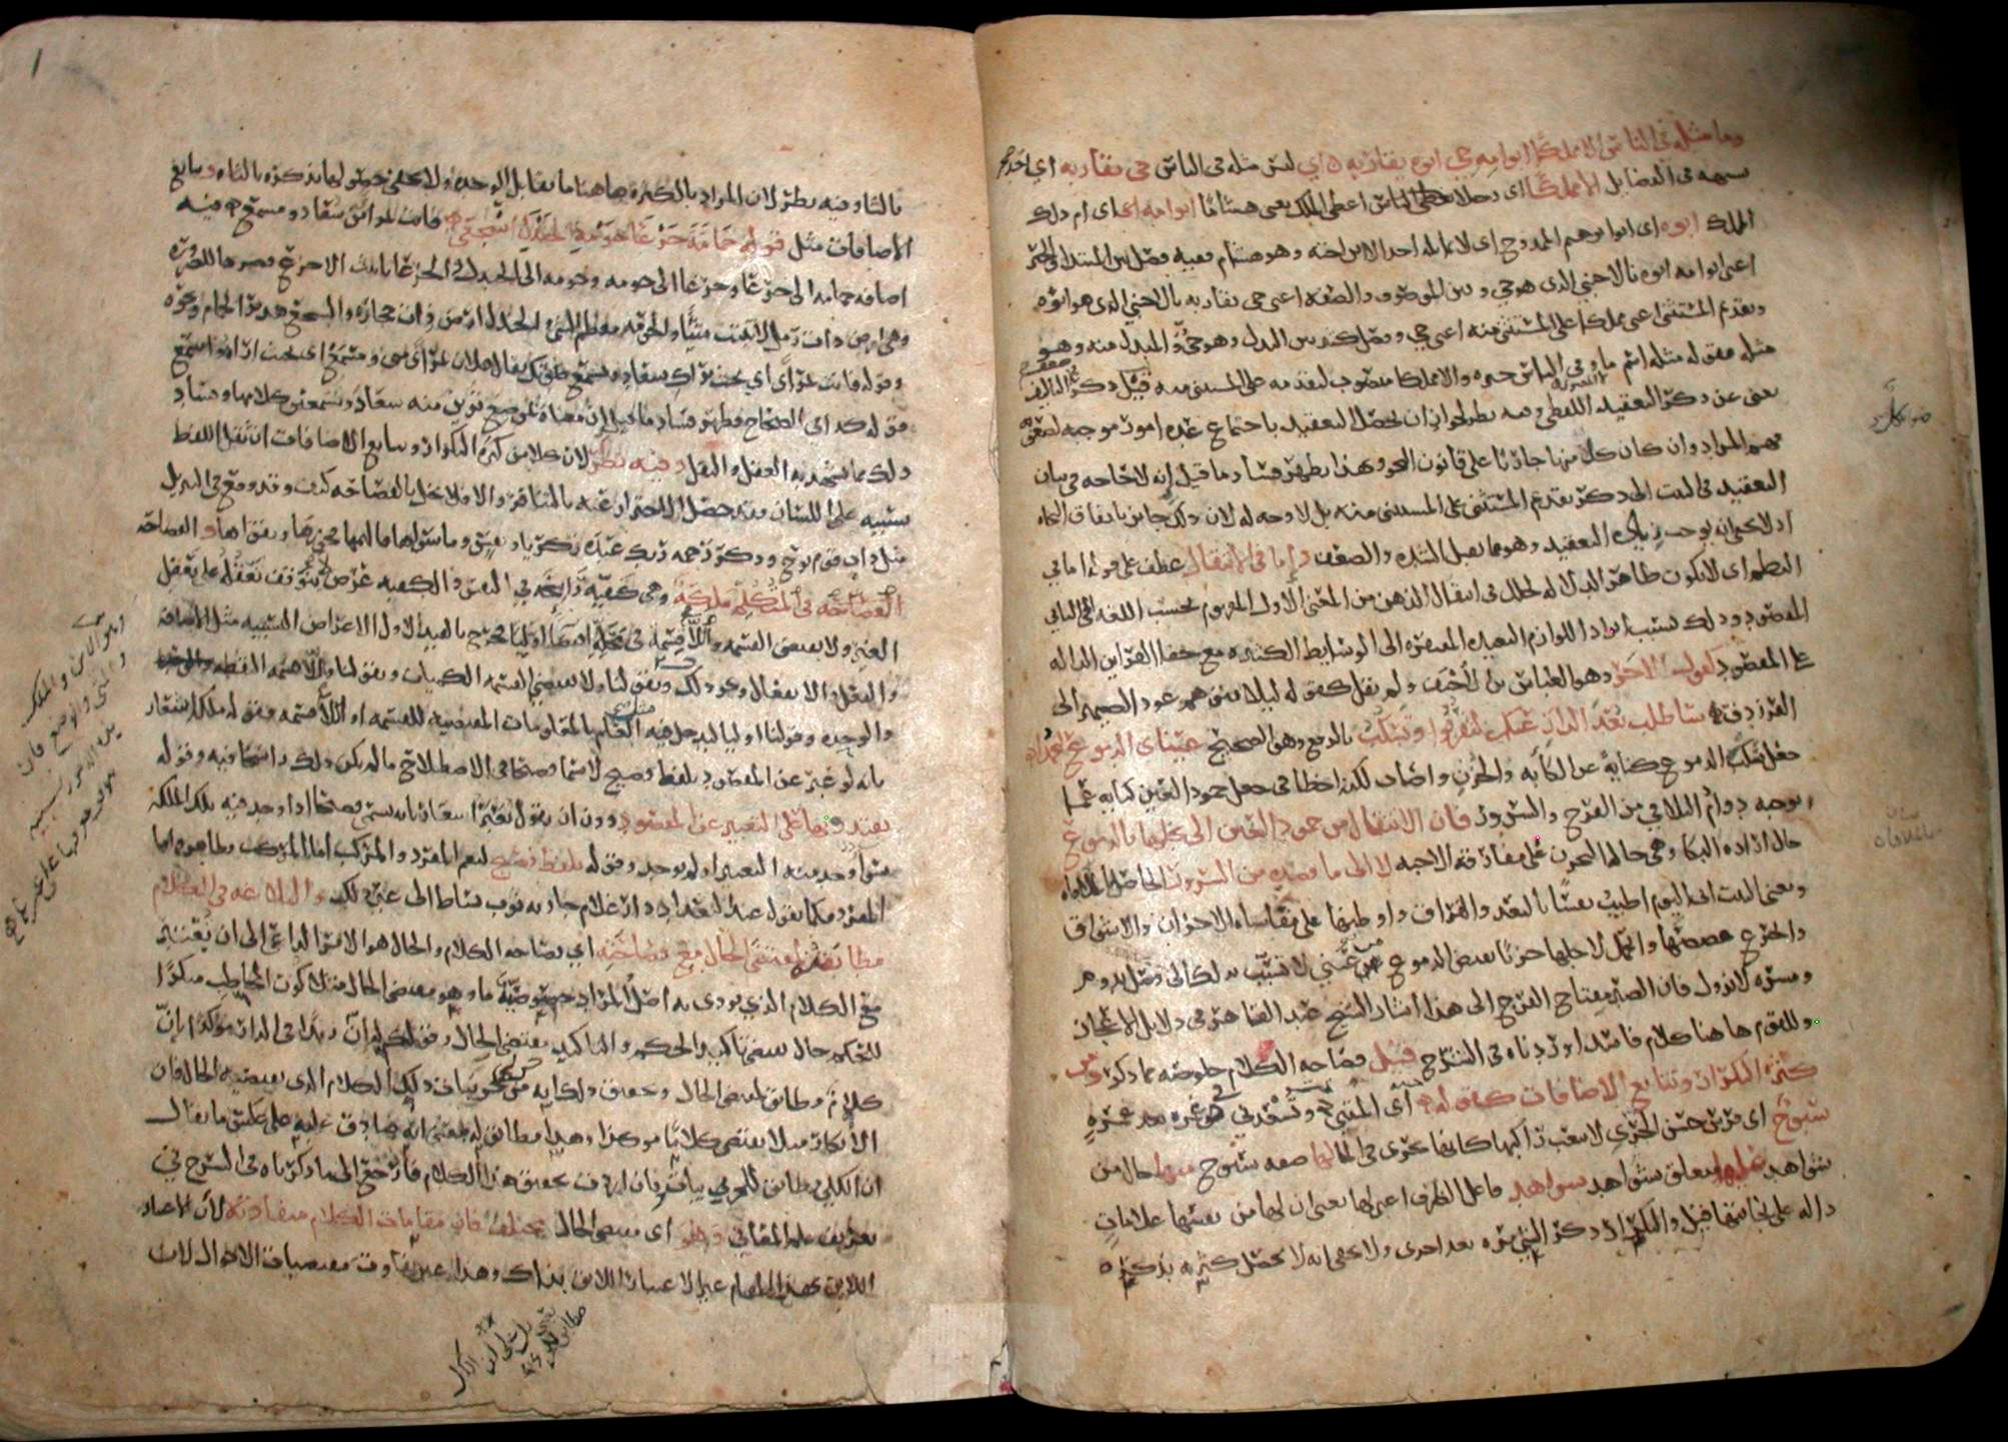 وما مثله في الناس الا مملكا ابو امه حي ابوه يقاربه اي ليس مثله في الناس حي يقاربه اي احد
يشبهه في الفضايل الا مملكا اي رجلا اعطي الملك يعني هشاما ابو امه اي ام ذلك
الملك ابوه اي ابو ابرهيم الممدوح اي لا يماثله احد الا ابن اخته وهو هشام ففيه فصل بين المبتدا والخبر
اعني ابو امه ابوه بالاجنبي الذي هو حي وبين الموصوف والصفة اعني حي يقاربه بالاجنبي الذي هو ابوه
وتقديم المستثنى اعني مملكا على المستثنى منه اعني حي وفصل كثير بين البدل وهو حي والمبدل منه وهو
مثله فقوله مثله اسم ما وفي الناس خبره والا مملكا منصوب لتقدمه على المستثنى منه قيل ذكر ضعف التاليف
يغني عن ذكر التعقيد اللفظي وفيه نظر لجواز ان يحصل التعقيد باجتماع عدة امور موجبة لصعوبة
فهم المراد وان كان كل منها جاريا على قانون النحو وبهذا يظهر فساد ما قيل انه لا حاجة في بيان
التعقيد في البيت الى ذكر تقديم المستثنى على المستثنى منه بل لا وجه له لان ذلك جايز باتفاق النحاة
اذ لا يخفى انه يوجب زيادة التعقيد وهو مما يقبل الشدة والضعف واما في الانتقال عطف على قوله اما في
النظم اي لا يكون ظاهر الدلالة لخلل في انتقال الذهن من المعنى الاول المفهوم بحسب اللغة الى الثاني
المقصود وذلك بسبب ايراد اللوازم البعيدة المفتقرة الى الوسايط الكثيرة مع خفا القراين الدالة
على المقصود كقول الاخر وهو العباس بن الاحنف ولم يقل كقوله ليلا يتوهم عود الضمير الى
الفرزدق سأطلب بعد الدار عنكم لتقربوا وتسكب بالرفع وهو الصحيح عيناي الدموع لتجمدا
جعل سكب الدموع كناية عن الكآبة والحزن واصاب لكنه اخطا في جعل جمود العين كناية عما
يوجبه دوام التلاقي من الفرح والسرور فان الانتقال من جمود العين الى بخلها بالدموع
حال ارادة البكا وهي حالة الحزن على مفارقة الاحبة لا الى ما قصده من السرور الحاصل بالملاقاة
ومعنى البيت اني اليوم اطيب نفسا بالبعد والفراق واوطنها على مقاساة الاحزان والاشواق
واتجرع غصصها واتحمل لاجلها حزنا يفيض الدموع من عيني لاتسبب بذلك الى وصل يدوم
ومسرة لا تزول فان الصبر مفتاح الفرج الى هذا اشار الشيخ عبد القاهر في دلايل الاعجاز
وللقوم هاهنا كلام فاسد اوردناه في الشرح قيل فصاحة الكلام خلوصه مما ذكر ومن
كثرة التكرار وتتابع الاضافات كقوله اي المتنبي وتسعدني في غمرة بعد غمرة
سبوح اي فرس حسن الجري لا يتعب راكبها كانها تجري في الما لها صفة سبوح منها حال من
شواهد عليها متعلق بشواهد شواهد فاعل الظرف اعني لها يعني ان لها من نفسها علامات
دالة على نجابتها قيل والتكرار ذكر الشي مرة بعد اخرى ولا يخفى انه لا يحصل كثرته بذكره
1
ثالثا وفيه نظر لان المراد بالكثرة هاهنا ما يقابل الوحدة ولا يخفى حصولها بذكره ثالثا وتتابع
الاضافات مثل قوله حمامة جرعا حومة الجندل اسجعي فانت بمراى من سعاد ومسمع ففيه
اضافة حمامة الى جرعا وجرعا الى حومة وحومة الى الجندل والجرعا تانيث الاجرع قصرها للضرورة
وهي ارض ذات رمل لا تنبت شيئا والحومة معظم الشي والجندل ارض ذات حجارة والسجع هدير الحمام ونحوه
وقوله فانت بمراى اي بحيث تراك سعاد وتسمع صوتك يقال فلان بمراى مني ومسمع اي بحيث اراه واسمع
قوله كذا في الصحاح فظهر فساد ما قيل ان معناه بموضع ترين منه سعاد وتسمعين كلامها وفساد
ذلك مما يشهد به العقل والنقل وفيه نظر لان كلا من كثرة التكرار وتتابع الاضافات ان ثقل اللفظ
بسببه على اللسان فقد حصل الاحتراز عنه بالتنافر والا فلا يخل بالفصاحة كيف وقد وقع في التنزيل
مثل داب قوم نوح وذكر رحمة ربك عبده زكريا ونفس وما سواها فالهمها فجورها وتقواها والفصاحة
الفصاحة في المتكلم ملكة وهي كيفية راسخة في النفس والكيفية عرض لا يتوقف تعقله على تعقل
الغير ولا يقتضي القسمة واللاقسمة في محله اقتضا اوليا فخرج بالقيد الاول الاعراض النسبية مثل الاضافة
والفعل والانفعال ونحو ذلك وبقولنا ولا يقتضي القسمة الكميات وبقولنا واللاقسمة النقطة
والوحدة وقولنا اوليا ليدخل فيه العلم بالمعلومات المقتضية للقسمة او اللاقسمة فقوله ملكة اشعار
بانه لو عبر عن المقصود بلفظ فصيح لا يسمى فصيحا في الاصطلاح ما لم يكن ذلك راسخا فيه وقوله
يقتدر بها على التعبير عن المقصود دون ان يقول يعبر اشعار بانه يسمى فصيحا اذا وجد فيه تلك الملكة
سوا وجد منه التعبير او لم يوجد وقوله بلفظ فصيح ليعم المفرد والمركب اما المركب فظاهر واما
المفرد فكما يقول عند التعداد دار غلام جارية ثوب بساط الى غير ذلك والبلاغة في الكلام
مطابقته لمقتضى الحال مع فصاحته اي فصاحة الكلام والحال هو الامر الداعي الى ان يعتبر
مع الكلام الذي يودى به اصل المراد خصوصية ما وهو مقتضى الحال مثلا كون المخاطب منكرا
للحكم حال يقتضي تاكيد الحكم والتاكيد مقتضى الحال وقولك له ان زيدا في الدار موكدا بان
كلام مطابق لمقتضى الحال وتحقيق ذلك انه من جزييات ذلك الكلام الذي يقتضيه الحال فان
الانكار مثلا يقتضي كلاما موكدا وهذا مطابق له بمعنى انه صادق عليه على عكس ما يقال
ان الكلي مطابق للجزييات فان اردت تحقيق هذا الكلام فارجع الى ما ذكرناه في الشرح في
تعريف علم المعاني وهو اي مقتضى الحال مختلف فان مقامات الكلام متفاوتة لان الاعتبار
اللايق بهذا المقام غير الاعتبار اللايق بذاك وهذا عين تفاوت مقتضيات الاحوال لان